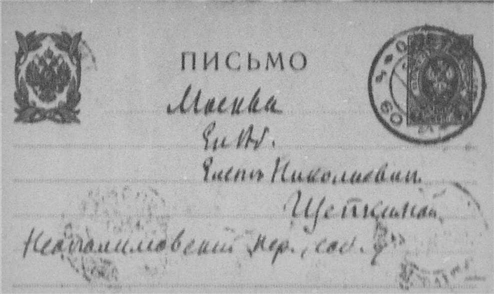 ПИСЬМО
Москва
Ел. Вб.
Еленѣ Николаевнѣ
Щепкиной
Неопалимовскій пер., соб. д.